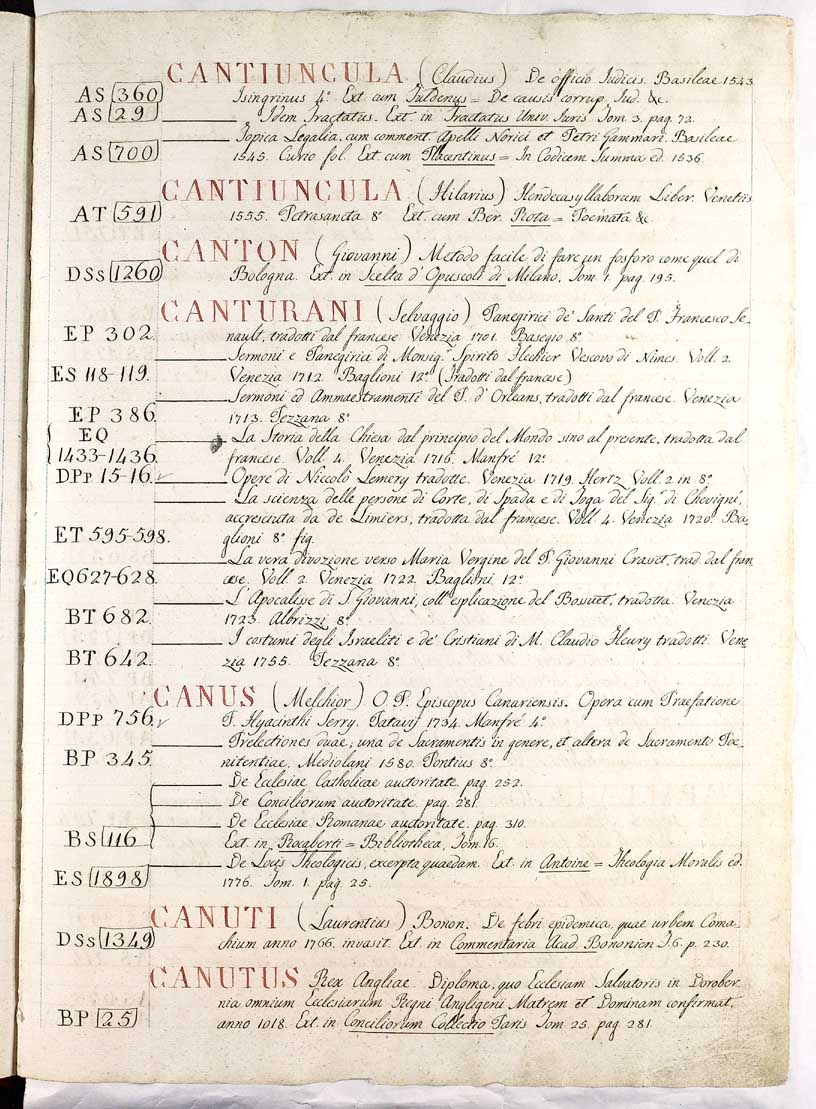 CANTIUNCULA (Claudius) De officio Iudicis. Basileae 1543
AS 360 Isingrinus 4.º Ext. cum Fuldenus = De causis corrup. Iud. &c.
AS 29 ——— Idem Tractatus. Ext. in Tractatus Univ. Iuris Tom. 3. pag. 72.
——— Topica Legalia, cum comment. Apelli Norici et Petri Gammari. Basileae
AS 700 1545. Curio fol. Ext. cum Placentinus = In Codicem Summa ed. 1536.
CANTIUNCULA (Hilarius) Hendecasyllaborum Liber. Venetiis
AT 591 1555. Petrasancta 8.º Ext. cum Ber. Rota = Poemata &c.
CANTON (Giovanni) Metodo facile di fare un fosforo come quel di
DSs 1260 Bologna. Ext. in Scelta d'Opuscoli di Milano, Tom. 1. pag. 195.
CANTURANI (Selvaggio) Panegirici de' Santi del P. Francesco Se-
EP 302. nault, tradotti dal francese Venezia 1701. Basegio 8.º
——— Sermoni e Panegirici di Monsig.r Spirito Flechier Vescovo di Nimes. Voll. 2.
ES 118-119. Venezia 1712. Baglioni 12.º (Tradotti dal francese)
——— Sermoni ed Ammaestramenti del P. d'Orleans, tradotti dal francese. Venezia
EP 386. 1713. Pezzana 8.º
EQ ——— La Storia della Chiesa dal principio del Mondo sino al presente, tradotta dal
1433-1436. francese. Voll. 4. Venezia 1716. Manfré 12.º
DPp 15-16. ——— Opere di Niccolò Lemery tradotte. Venezia 1719. Hertz Voll. 2. in 8.º
——— La scienza delle persone di Corte, di Spada e di Toga del Sig.r di Chevigni,
accresciuta da de Limiers, tradotta dal francese. Voll. 4. Venezia 1720. Ba-
ET 595-598. glioni 8.º fig.
——— La vera divozione verso Maria Vergine del P. Giovanni Craset, trad. dal fran
EQ 627-628. cese. Voll. 2. Venezia 1722. Baglioni 12.º
——— L'Apocalisse di S. Giovanni, coll'esplicazione del Bossuet, tradotta. Venezia
BT 682. 1723. Albrizzi 8.º
——— I costumi degli Israeliti e de' Cristiani di M. Claudio Fleury tradotti. Vene
BT 642. zia 1755. Pezzana 8.º
CANUS (Melchior) O. P. Episcopus Canariensis. Opera cum Praefatione
DPp 756. P. Hyacinthi Serry. Patavij 1734. Manfré 4.º
——— Prelectiones duae; una de Sacramentis in genere, et altera de Sacramento Poe-
BP 345. nitentiae. Mediolani 1580. Pontius 8.º
——— De Ecclesiae Catholicae auctoritate. pag. 252.
——— De Conciliorum auctoritate. pag. 281.
——— De Ecclesiae Romanae auctoritate. pag. 310.
BS 116 Ext. in Rocaberti = Bibliotheca, Tom. 16.
——— De Locis Theologicis, excerpta quaedam. Ext. in Antoine = Theologia Moralis ed.
ES 1898 1776. Tom. 1. pag. 25.
CANUTI (Laurentius) Bonon. De febri epidemica, quae urbem Coma
DSs 1349 chium anno 1766. invasit. Ext. in Commentaria Acad Bononien T. 6. p. 230.
CANUTUS Rex Angliae. Diploma, quo Ecclesiam Salvatoris in Dorober
nia omnium Ecclesiarum Regni Angligeni Matrem et Dominam confirmat,
BP 25 anno 1018. Ext. in Conciliorum Collectio Paris Tom 25. pag 281.